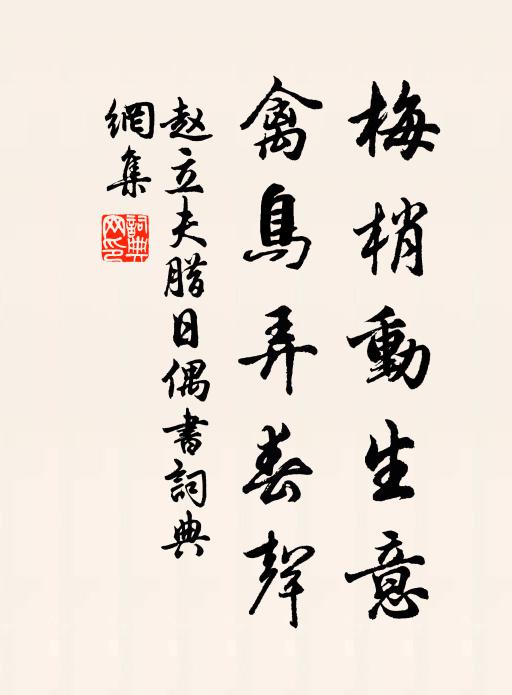 梅梢動生意
禽鳥弄春聲
赵立夫腊日偶書詞典
網集
詞典網印